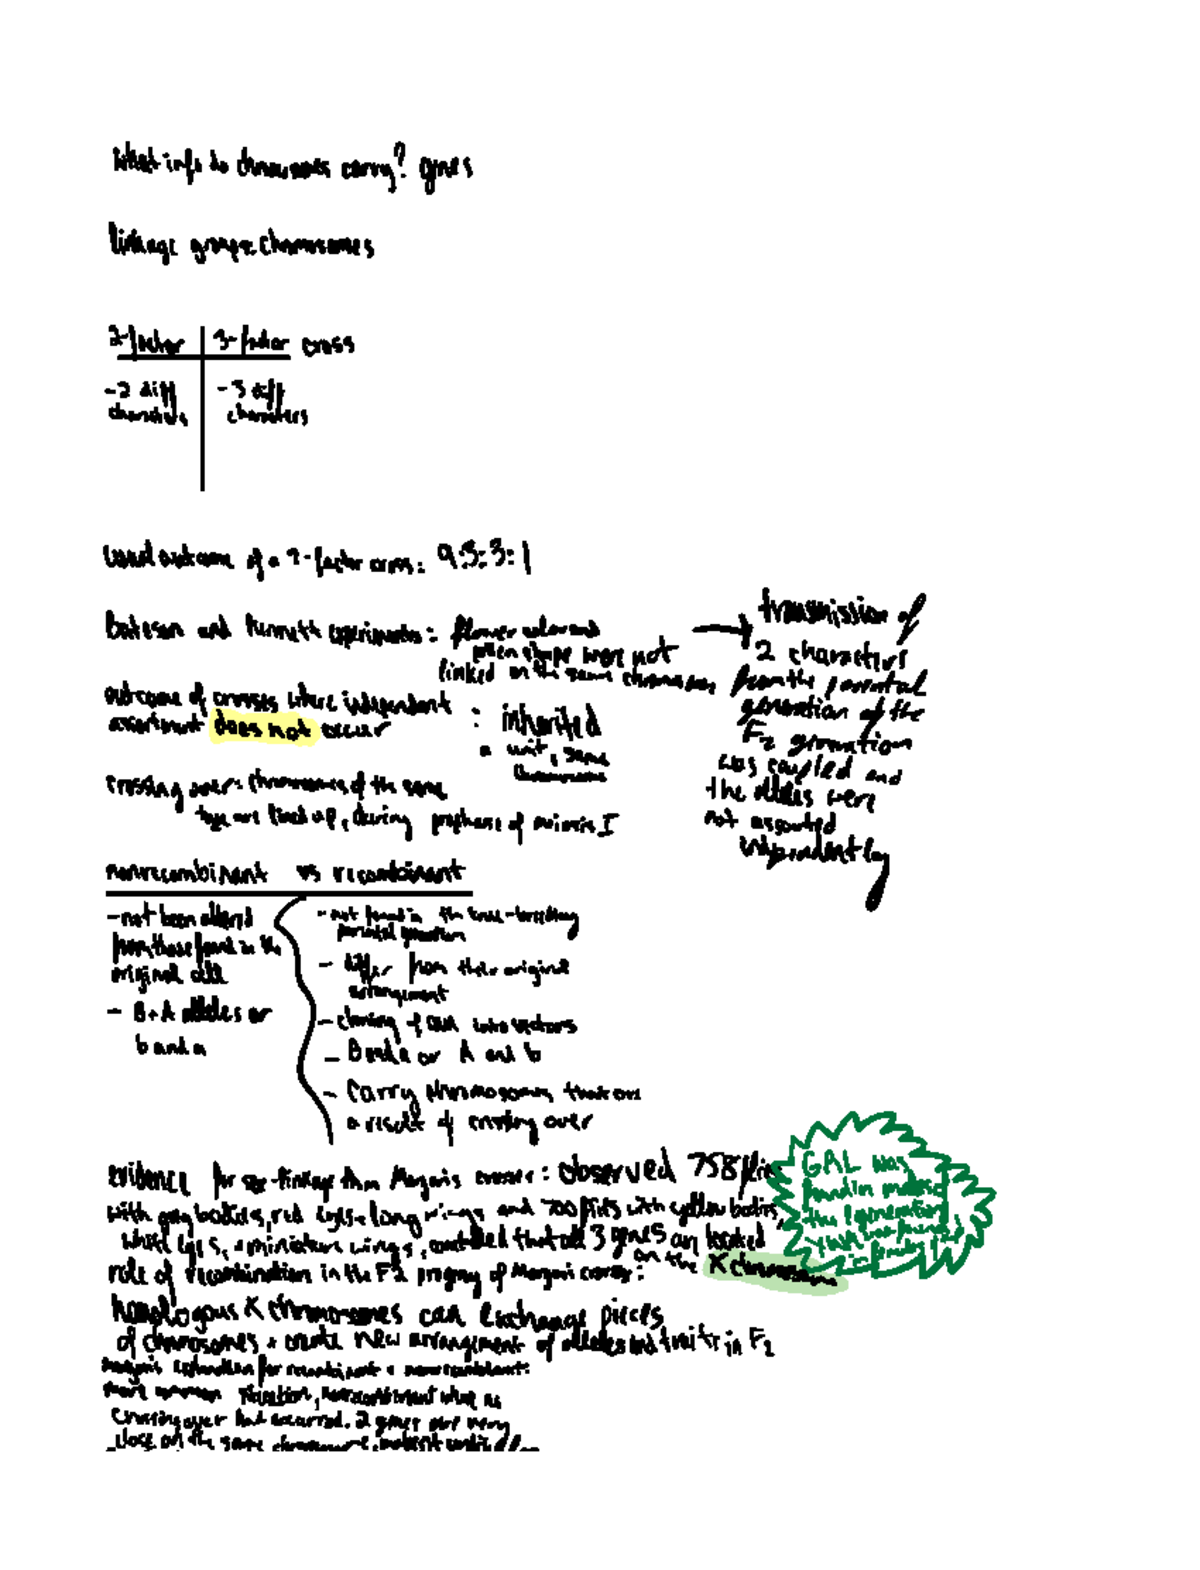 What info do chromosomes carry? genes
linkage groups: chromosomes
2-factor 3-factor cross
-2 diff - 3 diff
characters characters
usual outcome of a 2-factor cross: 9:3:3:1
Bateson and Punnett experiments: flower color and
pollen shape were not
linked on the same chromosome
transmission of
2 characters
from the parental
generation of the
F2 generation
was coupled and
the alleles were
not assorted
independently
outcome of crosses where independent
assortment does not occur
: inherited
a unit, same
chromosome
crossing over: chromosomes of the same
type are lined up, during prophase of meiosis I
nonrecombinant vs recombinant
-not been altered
from those found in the
original cell
- B+A alleles or
b and a
- not found in the true-breeding
parental generation
- differ from their original
arrangement
- cloning of DNA into vectors
- B and a or A and b
- Carry chromosomes that are
a result of crossing over
evidence for sex-linkage from Morgan's crosses: observed 758 flies
with gray bodies, red eyes + long wings and 700 flies with yellow bodies,
white eyes, + miniature wings, that all 3 genes are located
on the X chromosome
GAL was
found in
the P generation
YWM was
in
role of recombination in the F2 progeny of Morgan's crosses:
homologous X chromosomes can exchange pieces
of chromosomes + create new arrangement of alleles and traits in F2
Morgan's explanation for recombinant + nonrecombinant:
more common situation, nonrecombinant when no
crossing over had occurred. 2 genes are very
close on the same chromosome,